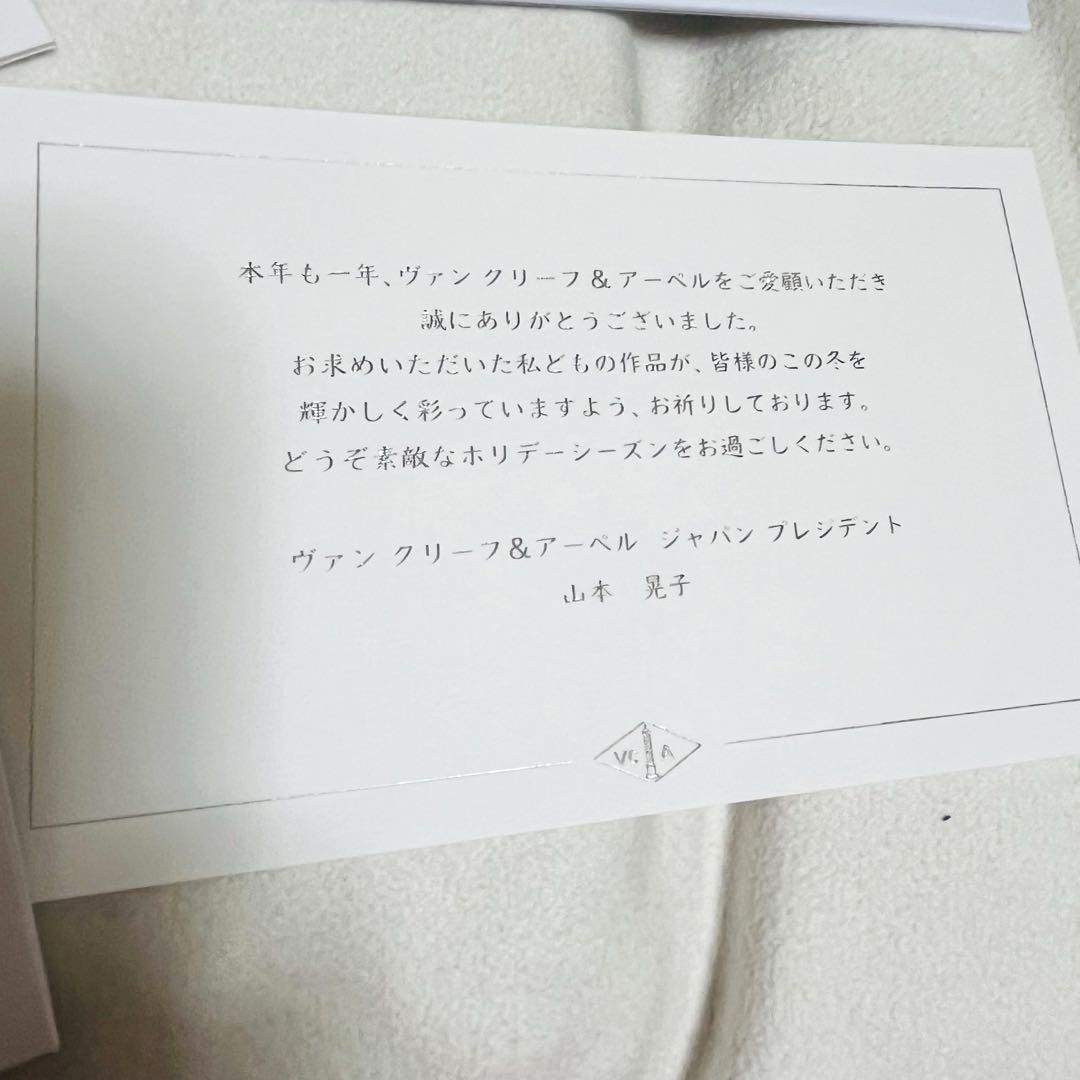 本年も一年、ヴァン クリーフ&アーペルをご愛顧いただき
誠にありがとうございました。
お求めいただいた私どもの作品が、皆様のこの冬を
輝かしく彩っていますよう、お祈りしております。
どうぞ素敵なホリデーシーズンをお過ごしください。
ヴァン クリーフ&アーペル ジャパン プレジデント
山本 晃子
VC A